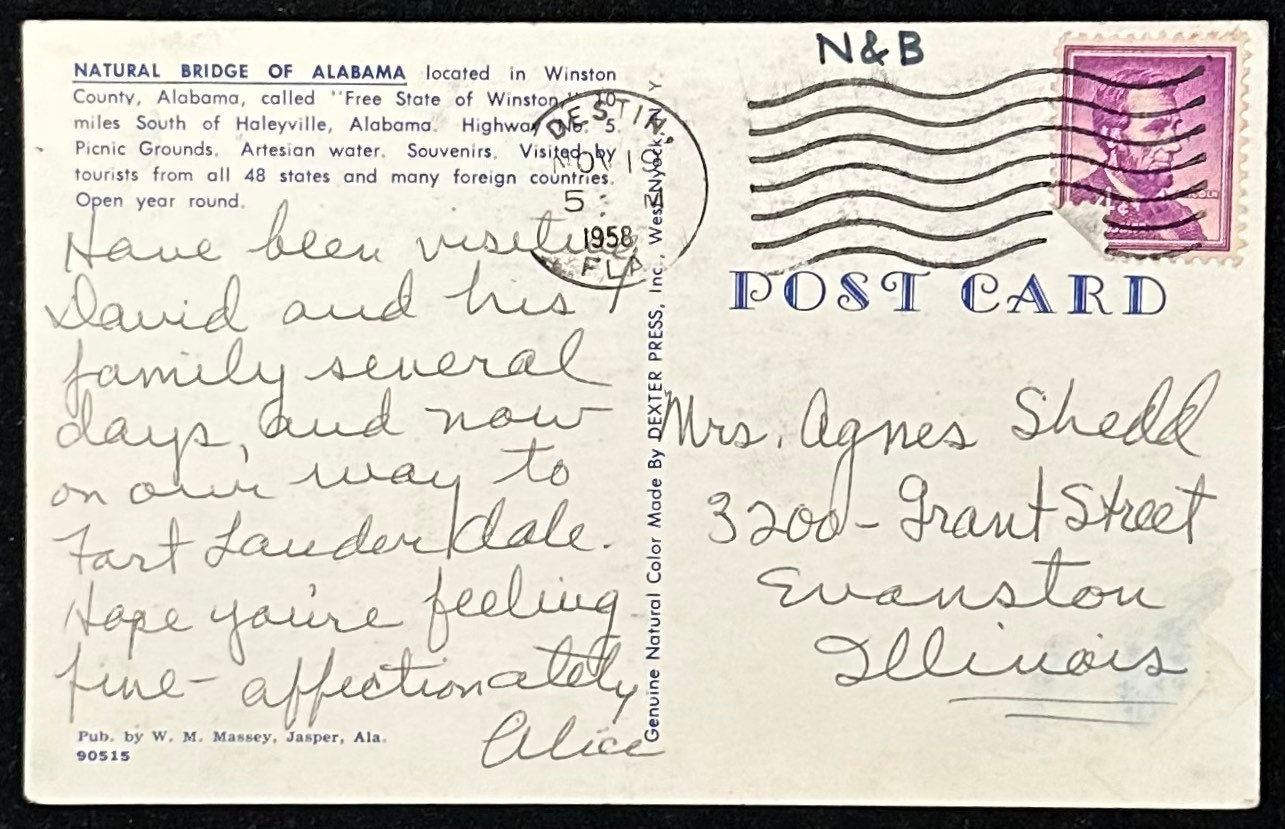 NATURAL BRIDGE OF ALABAMA located in Winston
County, Alabama, called "Free State of Winston," 10
miles South of Haleyville, Alabama. Highway No. 5.
Picnic Grounds. Artesian water. Souvenirs. Visited by
tourists from all 48 states and many foreign countries.
Open year round.
Have been visiting
David and his
family several
days, and now
on our way to
Fort Lauderdale.
Hope you're feeling
fine - affectionately
Alice
Pub. by W. M. Massey, Jasper, Ala.
90515
Genuine Natural Color Made By DEXTER PRESS, Inc., West Nyack, N. Y.
DESTIN,
NOV 19
5
1958
FLA
N&B
POST CARD
Mrs. Agnes Shedd
3200 - Grant Street
Evanston
Illinois